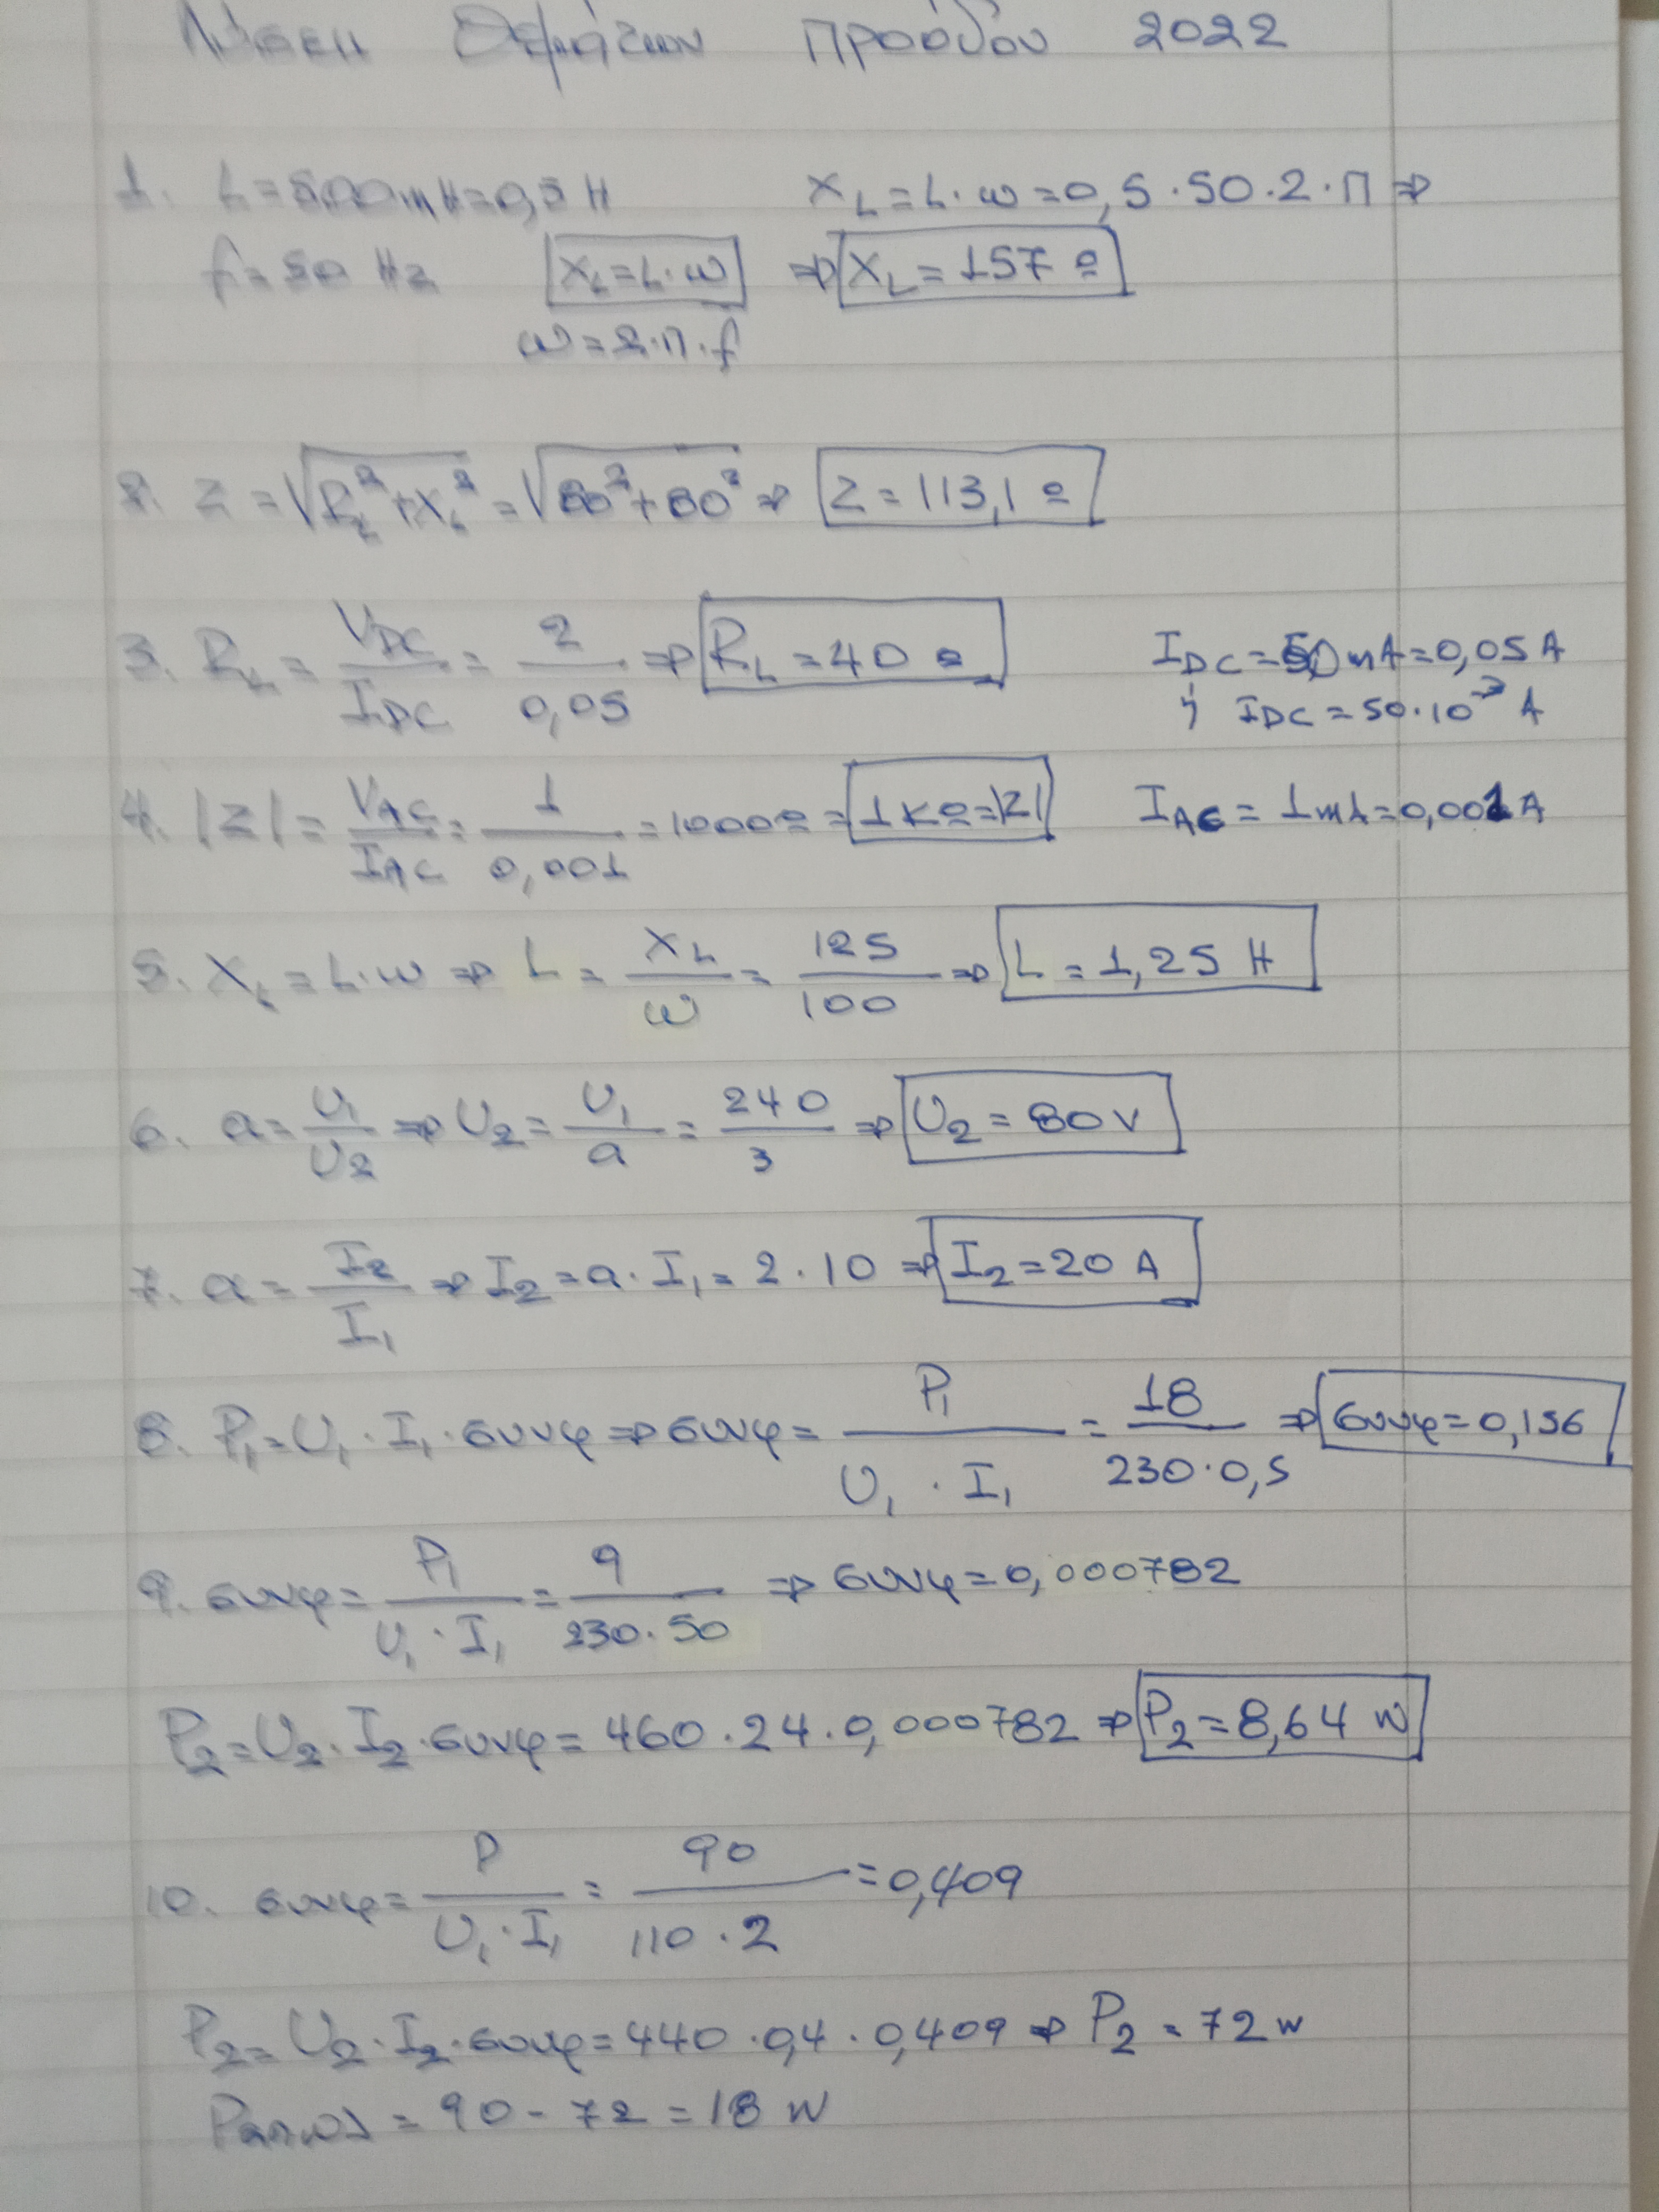 Λύσεη Θεμάτων Προόδου 2022
1. L=500mH=0,5 H XL=L·ω=0,5·50·2·Π ⇒
f=50 Hz XL=L·ω ⇒ XL=157 Ω
ω=2·Π·f
2. Z=√(RL²+XL²)=√(80²+80²) ⇒ Z=113,1 Ω
3. RL = VDC/IDC = 2/0,05 ⇒ RL=40 Ω IDC=50mA=0,05A
ή IDC=50·10⁻³ A
4. |Z| = VAC/IAC = 1/0,001 = 1000Ω = 1KΩ=|Z| IAC = 1mA=0,001A
5. XL=L·ω ⇒ L = XL/ω = 125/100 ⇒ L=1,25 H
6. a=U1/U2 ⇒ U2=U1/a = 240/3 ⇒ U2=80V
7. a=I2/I1 ⇒ I2=a·I1=2·10 ⇒ I2=20 A
8. P1=U1·I1·συνφ ⇒ συνφ= P1/(U1·I1) = 18/(230·0,5) ⇒ συνφ=0,156
9. συνφ= P1/(U1·I1) = 9/(230·50) ⇒ συνφ=0,000782
P2=U2·I2·συνφ=460·24·0,000782 ⇒ P2=8,64 W
10. συνφ= P/(U1·I1) = 90/(110·2) =0,409
P2=U2·I2·συνφ=440·0,4·0,409 ⇒ P2=72W
Pαπωλ=90-72=18 W